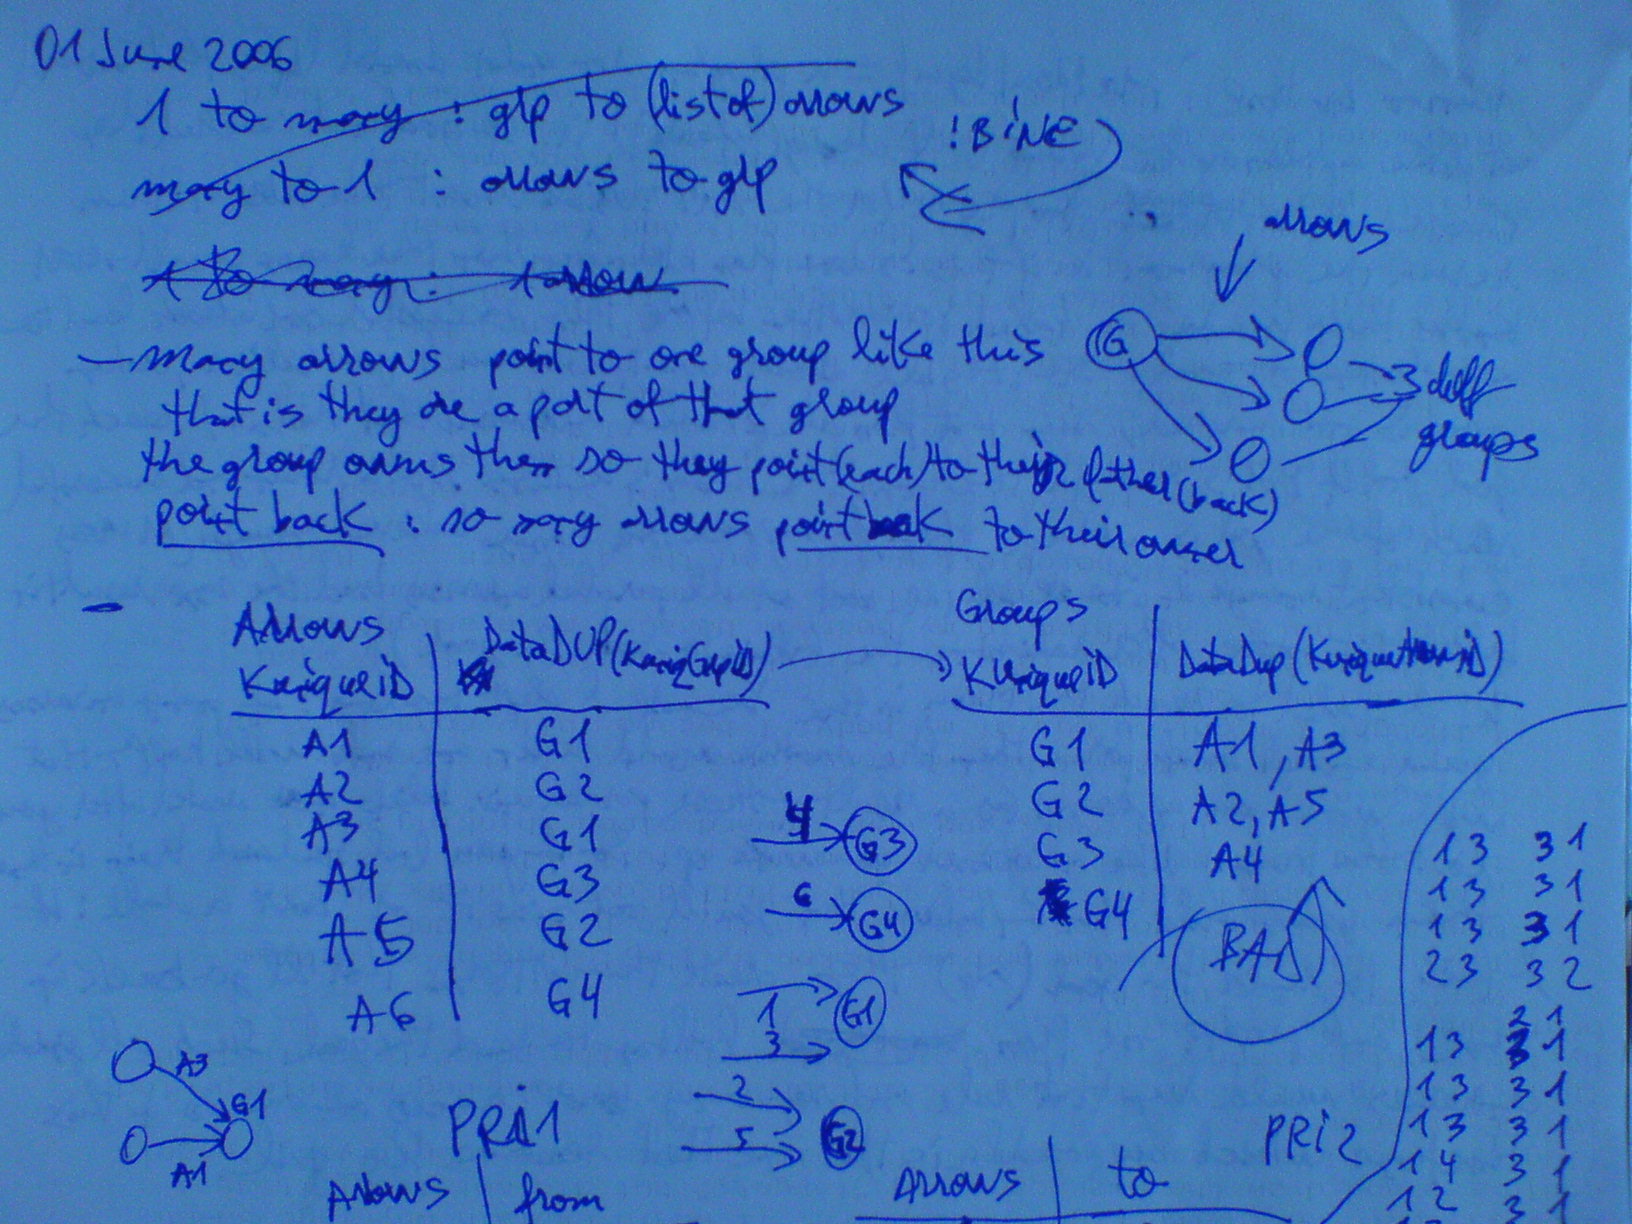 01 June 2006
1 to many : grp to (list of) arrows
many to 1 : arrows to grp
!BiNE
1 to many : 1 arrow
arrows
— Many arrows point to one group like this
that is they are a part of that group
the group owns them so they point (each) to their father (back)
point back : so many arrows point back to their owner
G
diff
groups
Arrows
KuniqueiD
DataDUP(KuniqGrpiD)
A1 G1
A2 G2
A3 G1
A4 G3
A5 G2
A6 G4
Groups
KUniqueiD
DataDup(KuniqueArrowsiD)
G1 A1, A3
G2 A2, A5
G3 A4
G4
BAD
4 G3
6 G4
1 G1
3
2
5 G2
A3
G1
A1
PRi1
Arrows from
PRi2
Arrows to
13 31
13 31
13 31
23 32
21
13 31
13 31
13 31
14 31
12 31